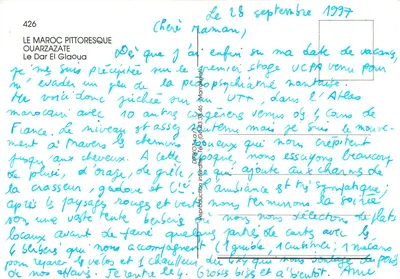 426
LE MAROC PITTORESQUE
OUARZAZATE
Le Dar El Glaoua
Le 28 septembre 1997
Chère Maman,
Dès que j'ai enfin su ma date de vacances,
je me suis précipitée sur le premier stage UCPA venu pour
m'évader un peu de la psychiatrie nantaise.
Me voici donc juchée sur un VTT, dans l'Atlas
marocain avec 10 autres congénères venus des 4 coins de
France. Le niveau est assez soutenu mais je suis le mouve-
ment à travers les chemins boueux qui nous crottent
jusqu'aux cheveux. A cette époque, nous essuyons beaucoup
de pluie, d'orage, de grêle, ce qui ajoute aux charmes de
la crasseur, gadoue et Cie. L'ambiance est très sympatique ;
après les paysages rouges et verts nous terminons la soirée
sous une vaste tente berbère où nous nous délectons de plats
locaux avant de faire quelques parties de cartes avec les
6 berbères qui nous accompagnent (1 guide, 1 cuisinier, 1 mécano
pour réparer les vélos et 1 chauffeur
de nos affaires. Je rentre le 4. Gross biss et à bientôt. Anne